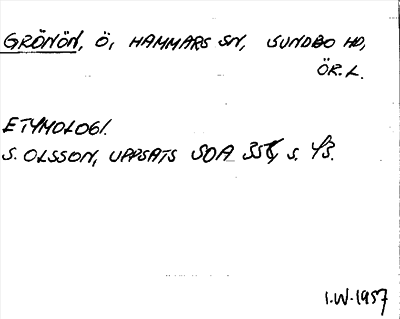 GRÖNÖN, Ö, HAMMARS SN, SUNDBO HD,
ÖR.L.
ETYMOLOGI.
S. OLSSON, UPPSATS SOA s.
I.W. 1957